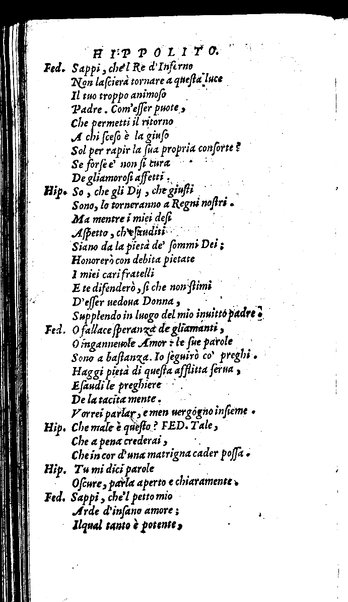 HIPPOLITO.
Fed. Sappi, che'l Re d'Inferno
Non lascierà tornare a questa luce
Il tuo troppo animoso
Padre. Com'esser puote,
Che permetti il ritorno
A chi sceso è la giuso
Sol per rapir la sua propria consorte?
Se forse e' non si cura
De gliamorosi affetti.
Hip. So, che gli Dij, che giusti
Sono, lo torneranno a Regni nostri.
Ma mentre i miei desi
Aspetto, ch'esauditi
Siano da la pietà de' sommi Dei;
Honorerò con debita pietate
I miei cari fratelli
E te difenderò, sì che non stimi
D'esser uedoua Donna,
Supplendo in luogo del mio inuitto padre.
Fed. O fallace speranza de gliamanti,
O ingannevole Amor: le sue parole
Sono a bastanza. Io seguirò co' preghi.
Haggi pietà di questa afflitta serua,
Esaudi le preghiere
De la tacita mente.
Vorrei parlar, e men uergogno insieme.
Hip. Che male è questo? FED. Tale,
Che a pena crederai,
Che in cor d'una matrigna cader possa.
Hip. Tu mi dici parole
Oscure, parla aperto e chiaramente.
Fed. Sappi, che'l petto mio
Arde d'insano amore;
Ilqual tanto è potente,